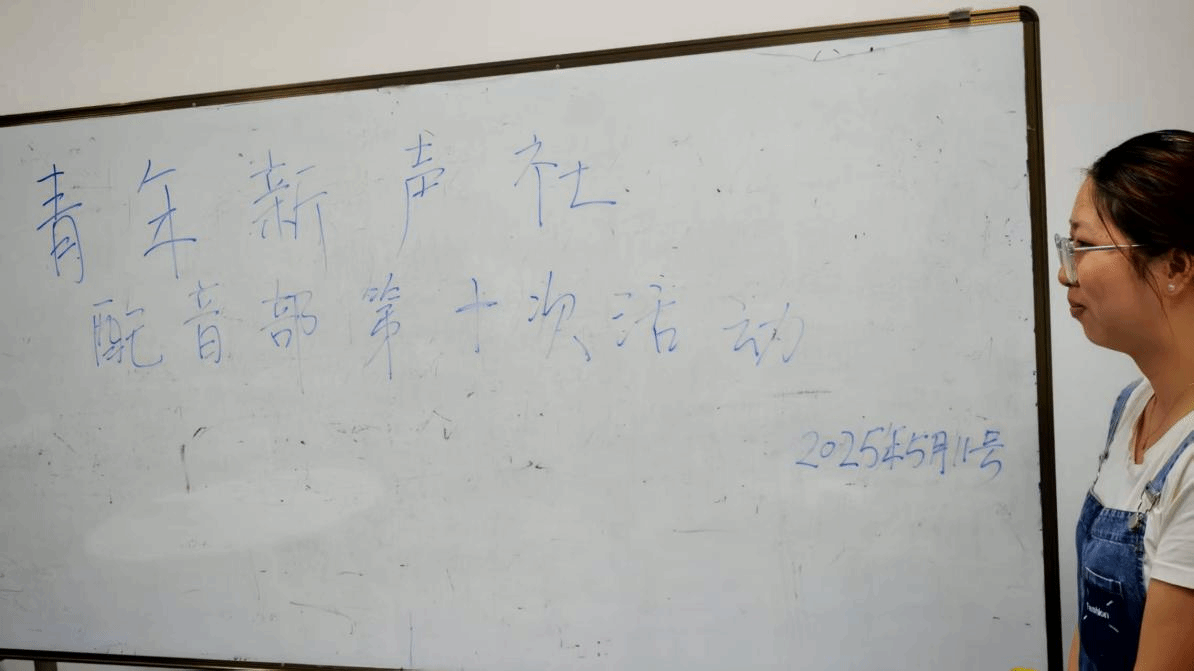 青年新声社
配音部第十次活动
2025年5月11号
fashion